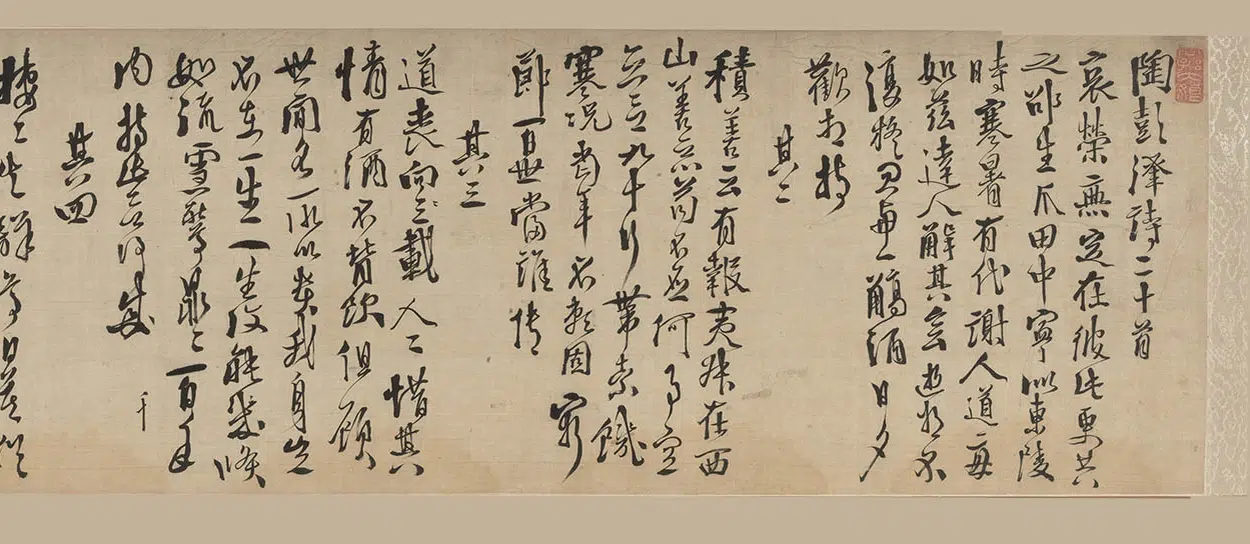 陶彭澤詩二十首
衰榮無定在彼此更共
之邵生瓜田中寧似東陵
時寒暑有代謝人道每
如茲達人解其會逝將不
復疑忽與一觴酒日夕
歡相持
其二
積善云有報夷叔在西
山善惡苟不應何事空
立言九十行帶索饑
寒況當年不賴固窮
節百世當誰傳
其三
道喪向三載人人惜其
情有酒不肯飲但顧
世間名所以貴我身豈
不在一生一生復能幾倏
如流電驚鼎鼎一百年
內持此欲何成
千
其四
栖栖失群鳥日暮猶